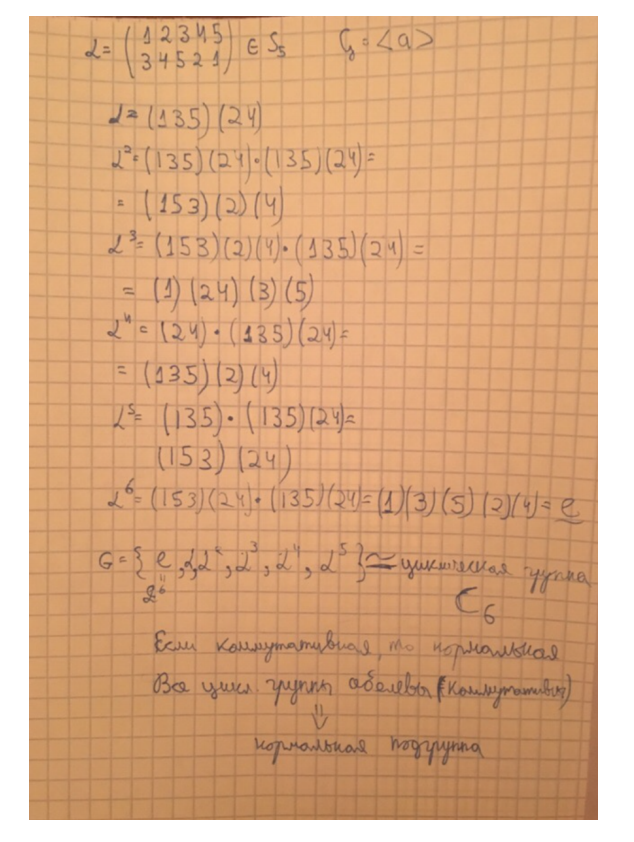 α = ( 1 2 3 4 5 ) ∈ S₅ G = <a>
( 3 4 5 2 1 )
α = (135)(24)
α² = (135)(24)·(135)(24) =
= (153)(2)(4)
α³ = (153)(2)(4)·(135)(24) =
= (1)(24)(3)(5)
α⁴ = (24)·(135)(24) =
= (135)(2)(4)
α⁵ = (135)·(135)(24) =
(153)(24)
α⁶ = (153)(24)·(135)(24) = (1)(3)(5)(2)(4) = e
G = { e, α, α², α³, α⁴, α⁵ } ≃ циклическая группа
α⁶ C₆
Если коммутативная, то нормальная
Все цикл. группы абелевы (коммутативы)
⇓
нормальная подгруппа